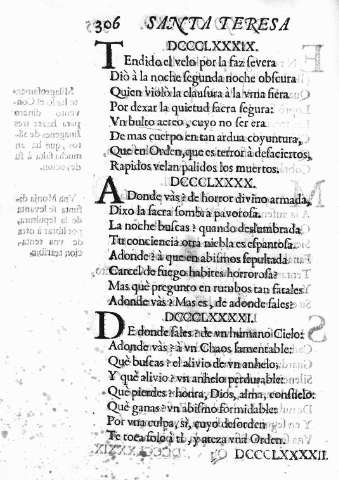 306 SANTA TERESA
DCCCLXXXIX.
TEndido el velo por la faz severa
Diò à la noche segunda noche obscura
Quien violò la clausura à la vrna fiera
Por dexar la quietud sacra segura:
Vn bulto aereo, cuyo no ser era
De mas cuerpo en tan ardua coyuntura,
Que en Orden, que es terror à desaciertos,
Rapidos velan palidos los muertos.
DCCCLXXXX.
ADonde vàs? de horror divino armada,
Dixo la sacra sombra pavorosa.
La noche buscas? quando deslumbrada
Tu conciencia otra niebla es espantosa.
Adonde? à que en abismos sepultada
Carcel de fuego habites horrorosa?
Mas què pregunto en rumbos tan fatales
Adonde vàs? Mas es, de adonde sales?
DCCCLXXXXI.
DE donde sales? de vn humano Cielo:
Adonde vàs? à vn Chaos lamentable:
Què buscas? el alivio de vn anhelo;
Y què alivio? vn anhelo perdurable:
Què pierdes? honra, Dios, alma, consuelo:
Què ganas? vn abismo formidable:
Por vna culpa, si, cuyo desorden
Te toca solo à ti, y ateza vna Orden.
DCCCLXXXXII.